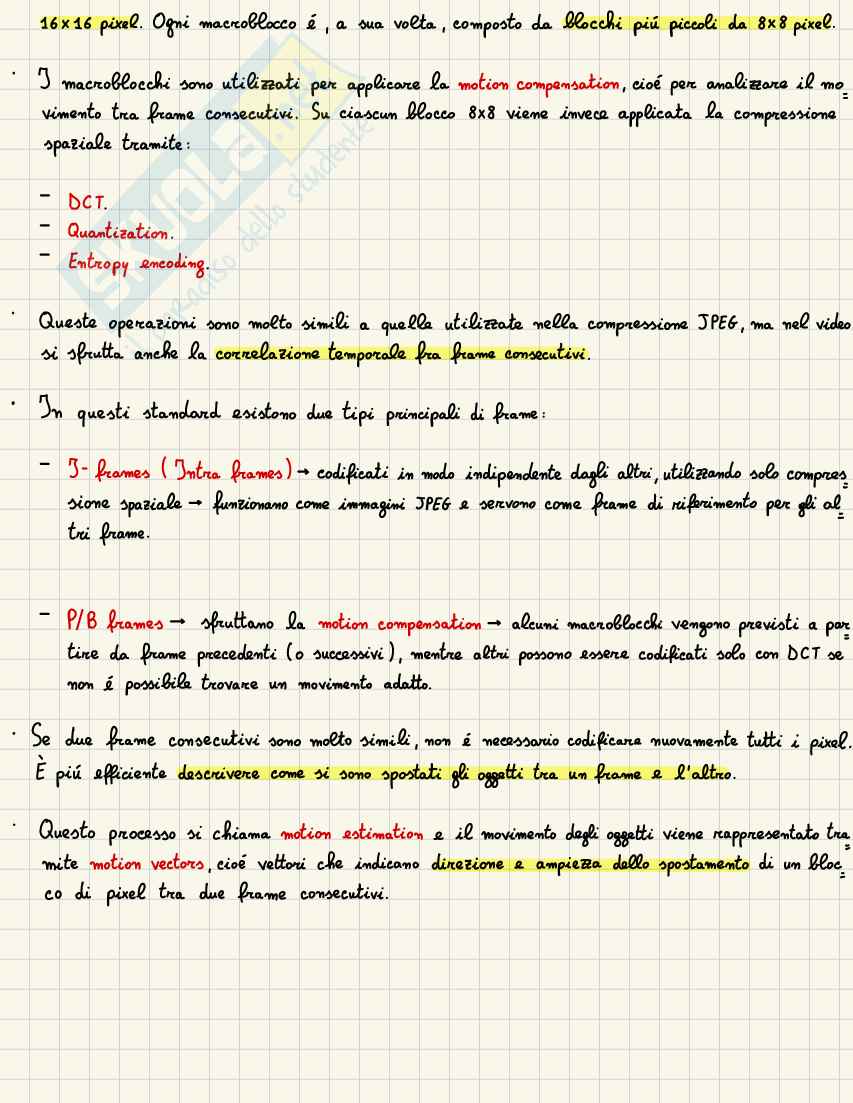 16x16 pixel. Ogni macroblocco é, a sua volta, composto da blocchi piú piccoli da 8x8 pixel.
· I macroblocchi sono utilizzati per applicare la motion compensation, cioé per analizzare il mo=
vimento tra frame consecutivi. Su ciascun blocco 8x8 viene invece applicata la compressione
spaziale tramite:
- DCT.
- Quantization.
- Entropy encoding.
· Queste operazioni sono molto simili a quelle utilizzate nella compressione JPEG, ma nel video
si sfrutta anche la correlazione temporale fra frame consecutivi.
· In questi standard esistono due tipi principali di frame:
- I-frames (Intra frames) → codificati in modo indipendente dagli altri, utilizzando solo compres=
sione spaziale → funzionano come immagini JPEG e servono come frame di riferimento per gli al=
tri frame.
- P/B frames → sfruttano la motion compensation → alcuni macroblocchi vengono previsti a par=
tire da frame precedenti (o successivi), mentre altri possono essere codificati solo con DCT se
non é possibile trovare un movimento adatto.
· Se due frame consecutivi sono molto simili, non é necessario codificare nuovamente tutti i pixel.
È piú efficiente descrivere come si sono spostati gli oggetti tra un frame e l'altro.
· Questo processo si chiama motion estimation e il movimento degli oggetti viene rappresentato tra=
mite motion vectors, cioé vettori che indicano direzione e ampiezza dello spostamento di un bloc=
co di pixel tra due frame consecutivi.
SKUOLA.net
il paradiso dello studente